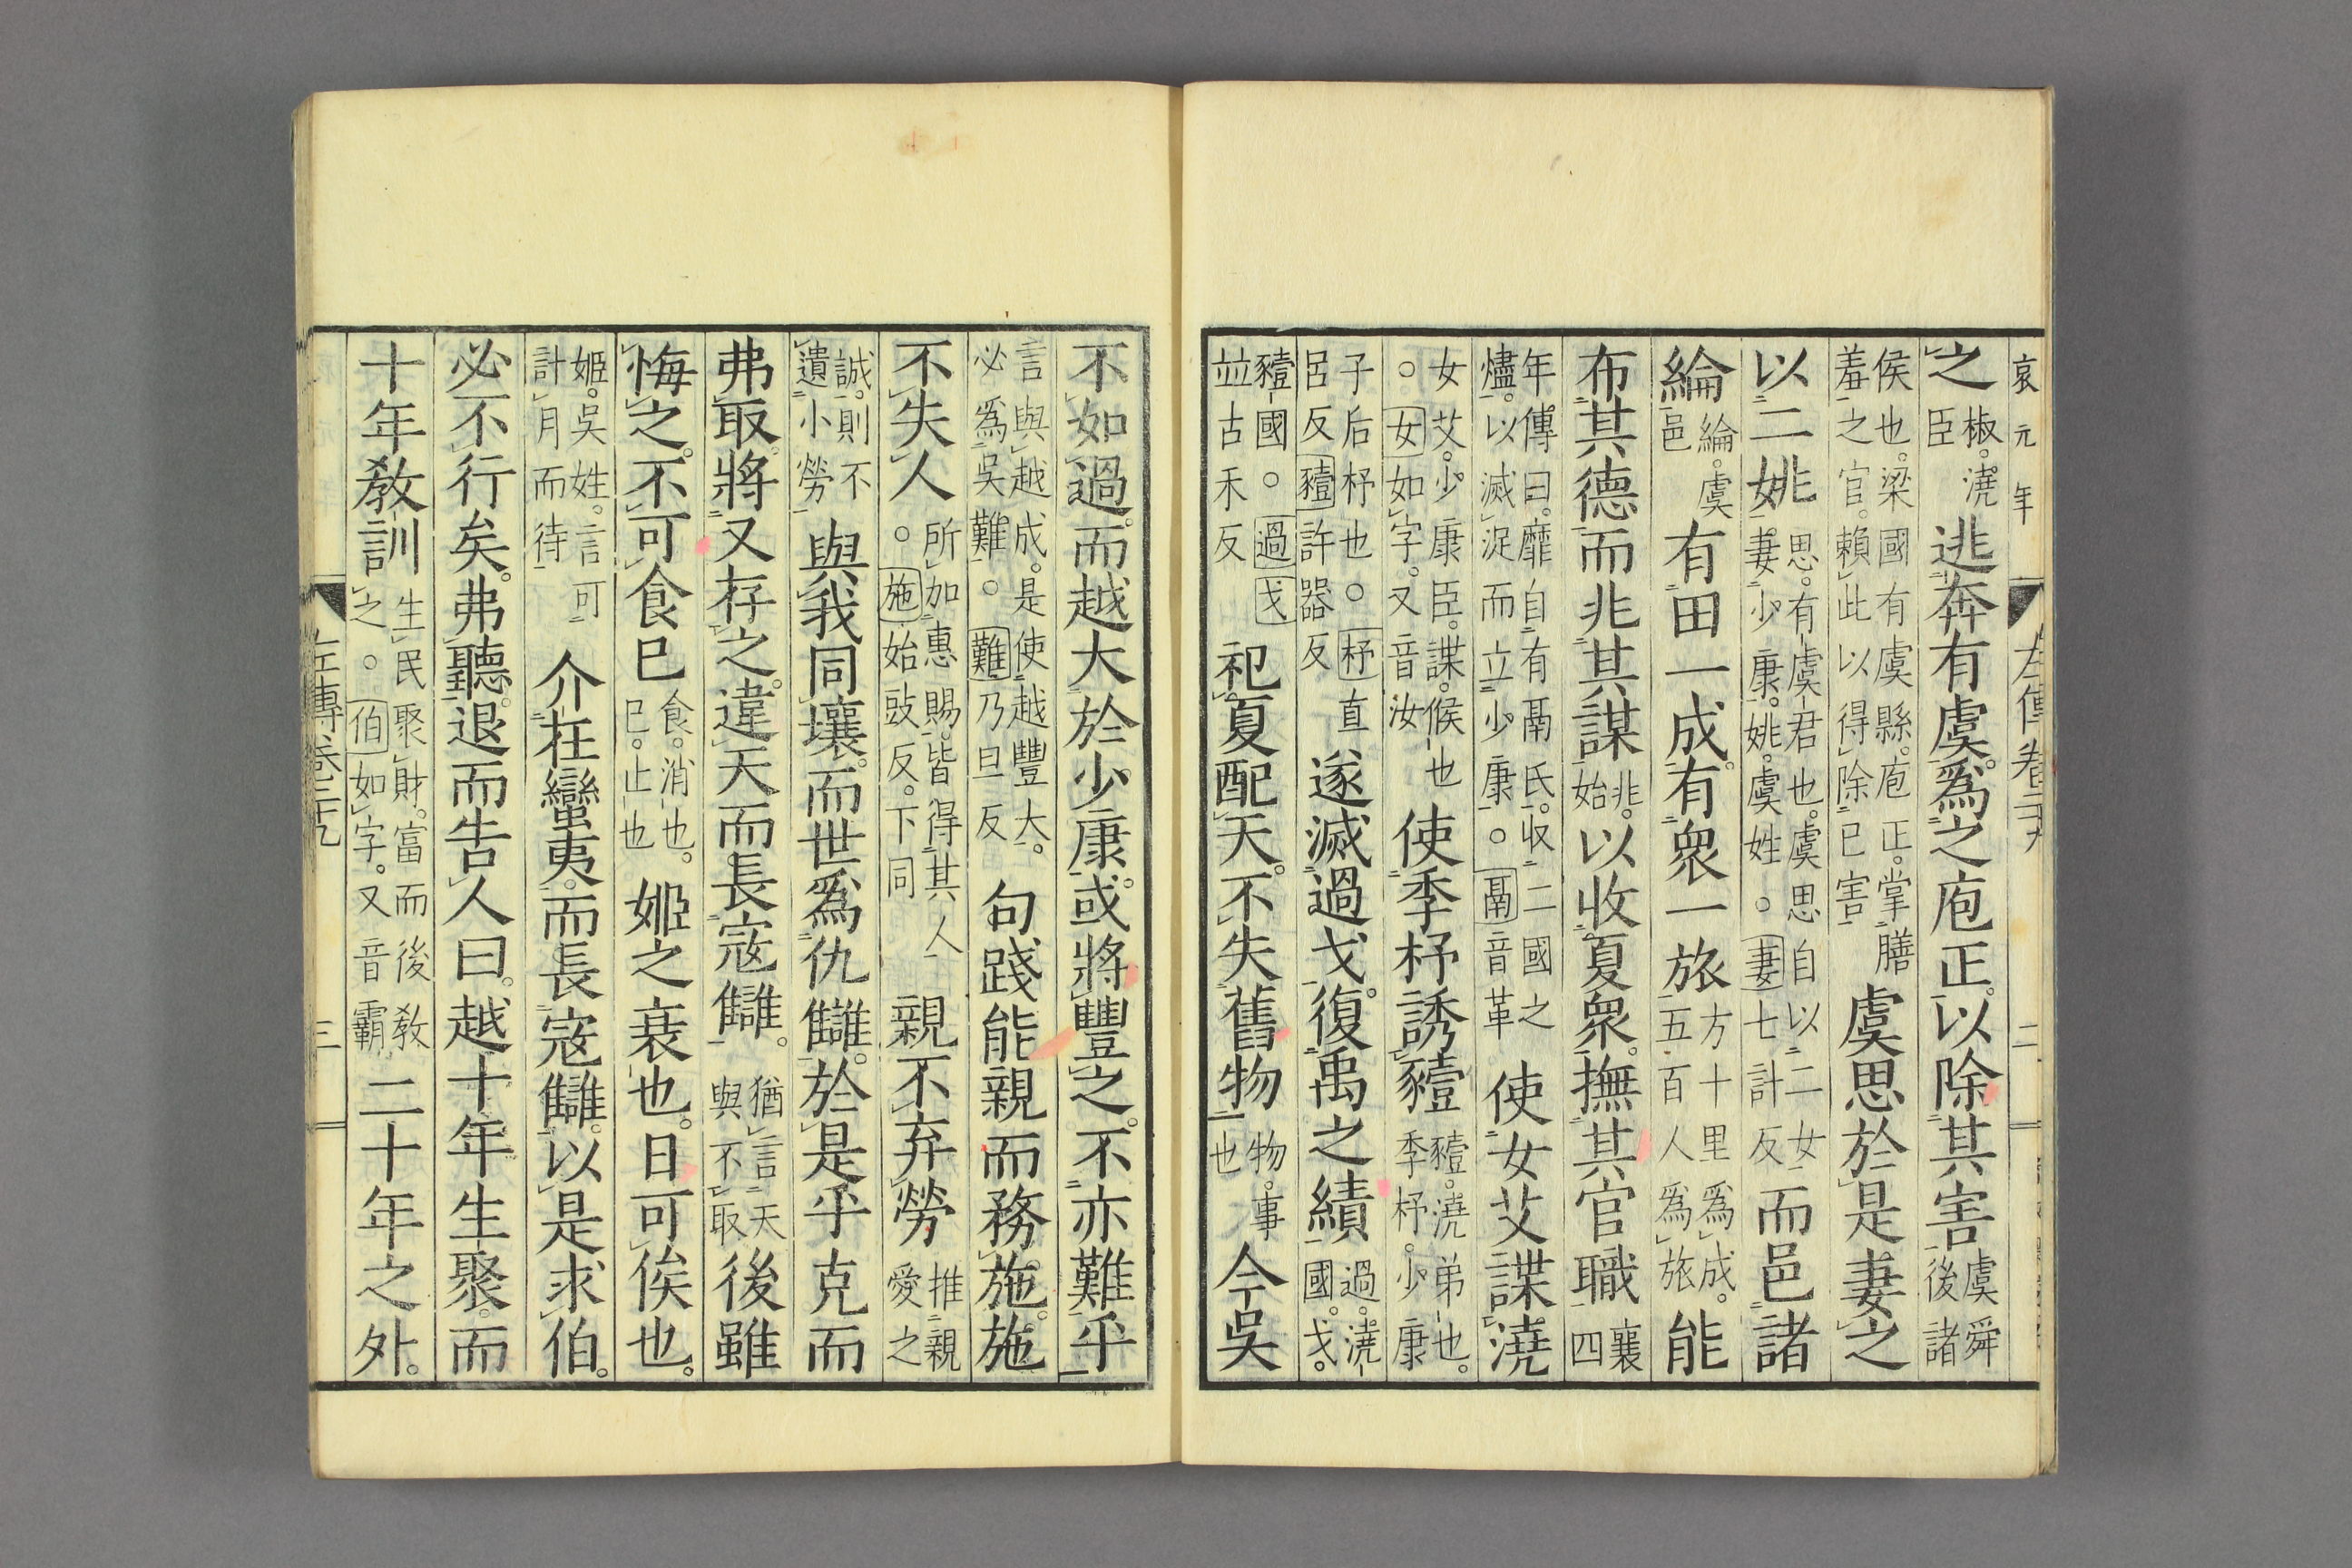 哀元年　左傳卷二十九　二
之椒。澆臣逃奔有虞。爲之庖正。以除其害虞舜後諸
侯也。梁國有虞縣。庖正。掌膳羞之官。賴此以得除已害虞思於是妻之
以二姚思。有虞君也。虞思自以二女妻少康。姚。虞姓。○妻七計反而邑諸
綸綸。虞邑有田一成。有衆一旅方十里爲成。五百人爲旅能
布其德而兆其謀兆。始以收夏衆。撫其官職襄四
年傳曰。靡自有鬲氏。收二國之燼。以滅浞而立少康。○鬲音革使女艾諜澆
女艾。少康臣。諜。候也。○女如字。又音汝使季杼誘豷豷。澆弟也。季杼。少康
子后杼也。○杼直呂反豷許器反遂滅過戈。復禹之績過。澆國。戈。
豷國。○過戈並古禾反祀夏配天。不失舊物物。事也今吳
不如過。而越大於少康。或將豐之。不亦難乎
言與越成。是使越豐大。必爲吳難。○難乃旦反句踐能親而務施。施
不失人所加惠賜。皆得其人。○施始豉反。下同親不弃勞推親愛之
誠。則不遺小勞與我同壤。而世爲仇讎。於是乎克而
弗取。將又存之。違天而長寇讎。猶言天與不取後雖
悔之。不可食已食。消也。已。止也姬之衰也。日可俟也。
姬。吳姓。言可計月而待介在蠻夷。而長寇讎。以是求伯。
必不行矣。弗聽。退而告人曰。越十年生聚。而
十年敎訓生民聚財。富而後敎之。○伯如字。又音霸二十年之外。
左傳卷二十九　三